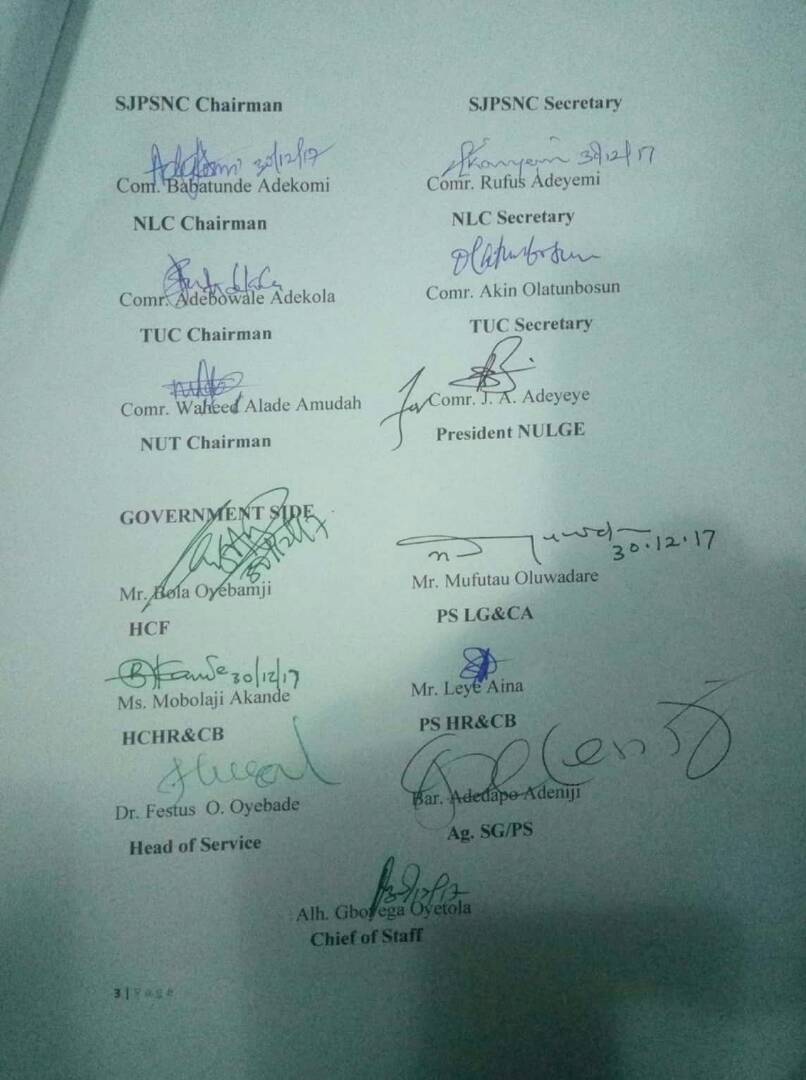 SJPSNC Chairman
SJPSNC Secretary
Adekomi 30/12/17
30/12/17
Com. Babatunde Adekomi
Comr. Rufus Adeyemi
NLC Chairman
NLC Secretary
Olatunbosun
Comr. Adebowale Adekola
Comr. Akin Olatunbosun
TUC Chairman
TUC Secretary
Comr. Waheed Alade Amudah
for Comr. J. A. Adeyeye
NUT Chairman
President NULGE
GOVERNMENT SIDE
30/12/17
30.12.17
Mr. Bola Oyebamji
Mr. Mufutau Oluwadare
HCF
PS LG&CA
30/12/17
Ms. Mobolaji Akande
Mr. Leye Aina
HCHR&CB
PS HR&CB
Dr. Festus O. Oyebade
Bar. Adedapo Adeniji
Head of Service
Ag. SG/PS
30/12/17
Alh. Gboyega Oyetola
Chief of Staff
3 | Page